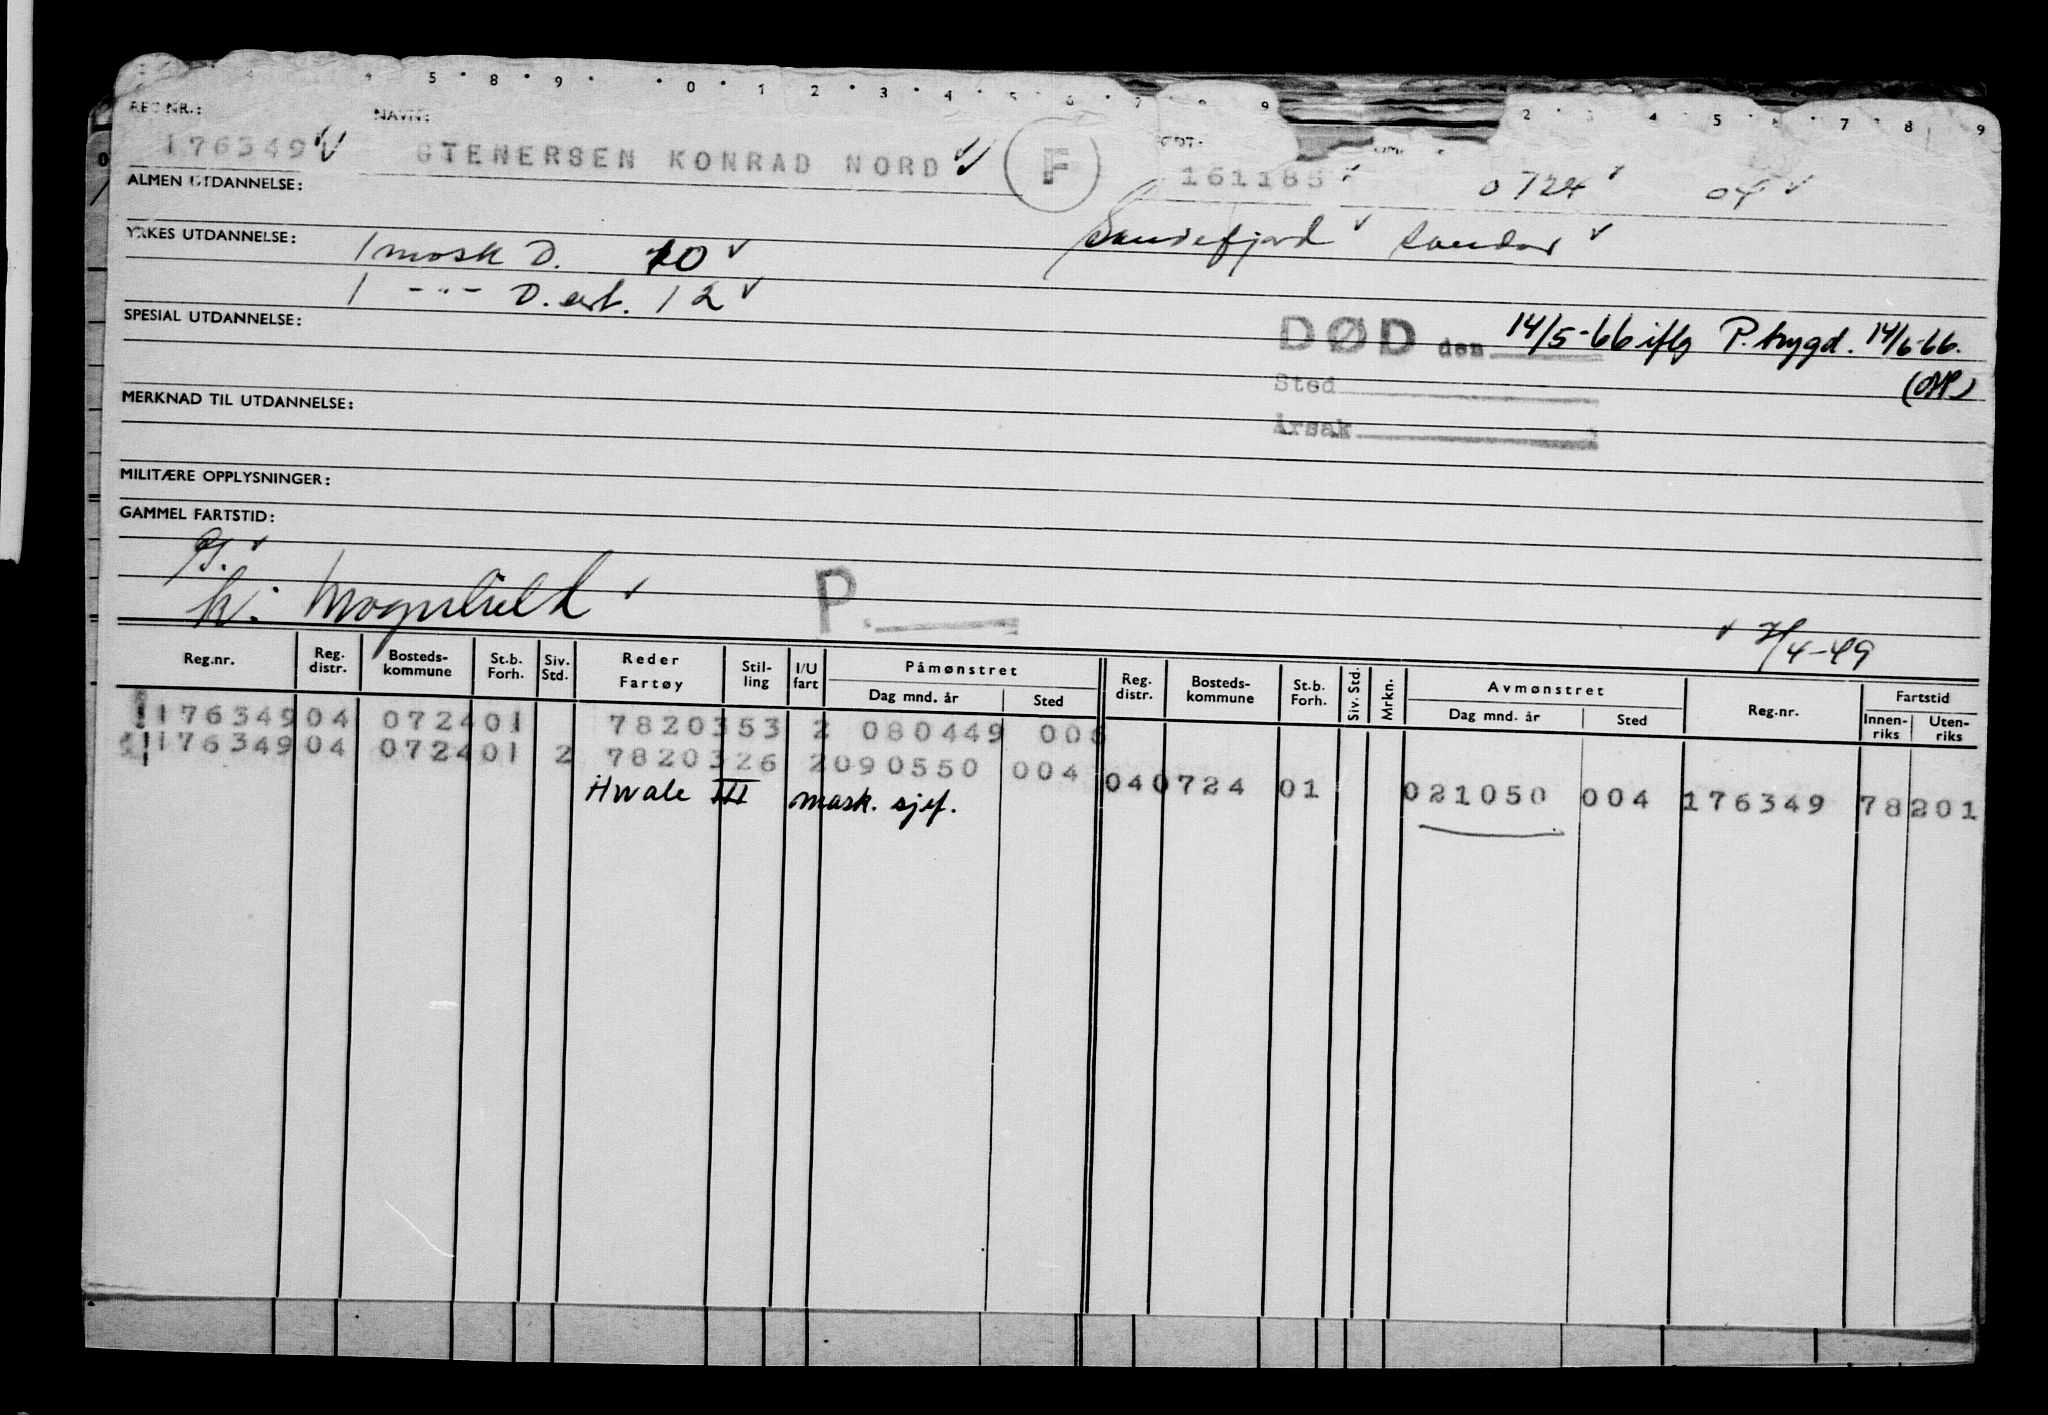 5 8 9 0 1 2 3 4 5 6 7 9 2 3 4 5 6 7 8 9
REG.NR.: NAVN:
176349 STENERSEN KONRAD NORD F 161185 0724 04
ALMEN UTDANNELSE:
Sandefjord Sandar
YRKES UTDANNELSE: 1 mask D. 10
1 -"- D. ert. 12
SPESIAL UTDANNELSE:
DØD den 14/5-66 iflg P. trygd. 14/6-66.
Sted
MERKNAD TIL UTDANNELSE:
Årsak
MILITÆRE OPPLYSNINGER:
GAMMEL FARTSTID:
G.
h: Magnhild P.
7/4-49
Reg.nr. Reg. distr. Bosteds-kommune St.b. Forh. Siv. Std. Reder Fartøy Stil-ling I/U fart Påmønstret Dag mnd. år Sted Reg. distr. Bosteds-kommune St.b. Forh. Siv. Std. Mrkn. Avmønstret Dag mnd. år Sted Reg.nr. Fartstid Innen-riks Uten-riks
176349 04 0724 01 7820353 2 080449 006
176349 04 0724 01 2 7820326 2 090550 004
04 0724 01 021050 004 176349 78201
Hvale III mask. sjef.